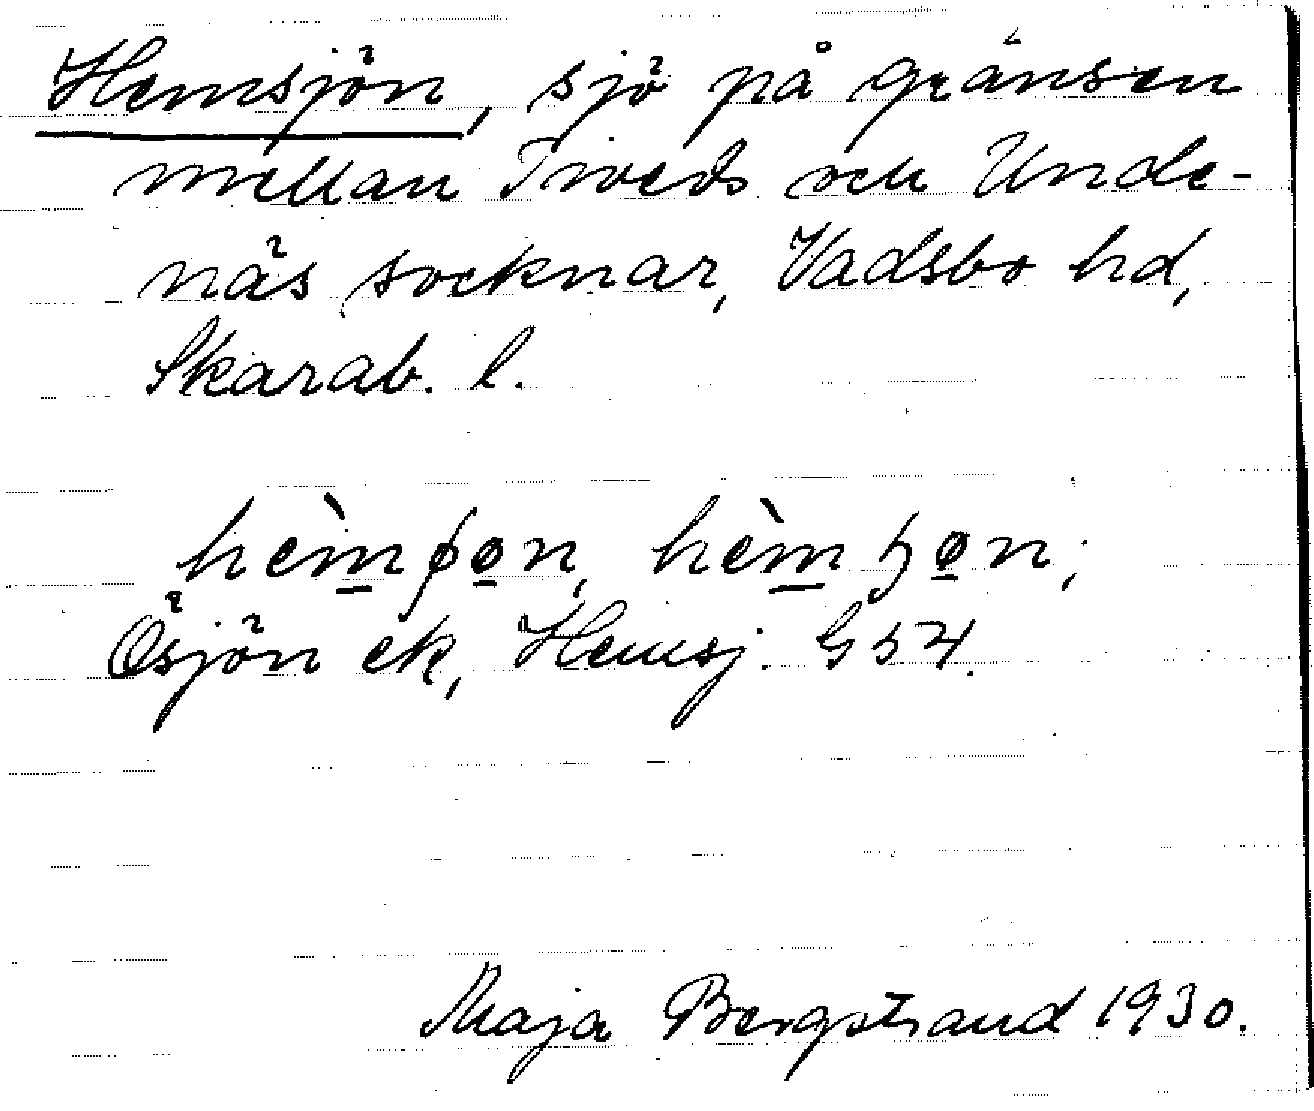 Hemsjön, sjö på gränsen
mellan Tiveds och Unde-
näs socknar, Vadsbo hd,
Skarab. l.
Ösjön ek, Hemsj. G 54.
Maja Bergstrand 1930.